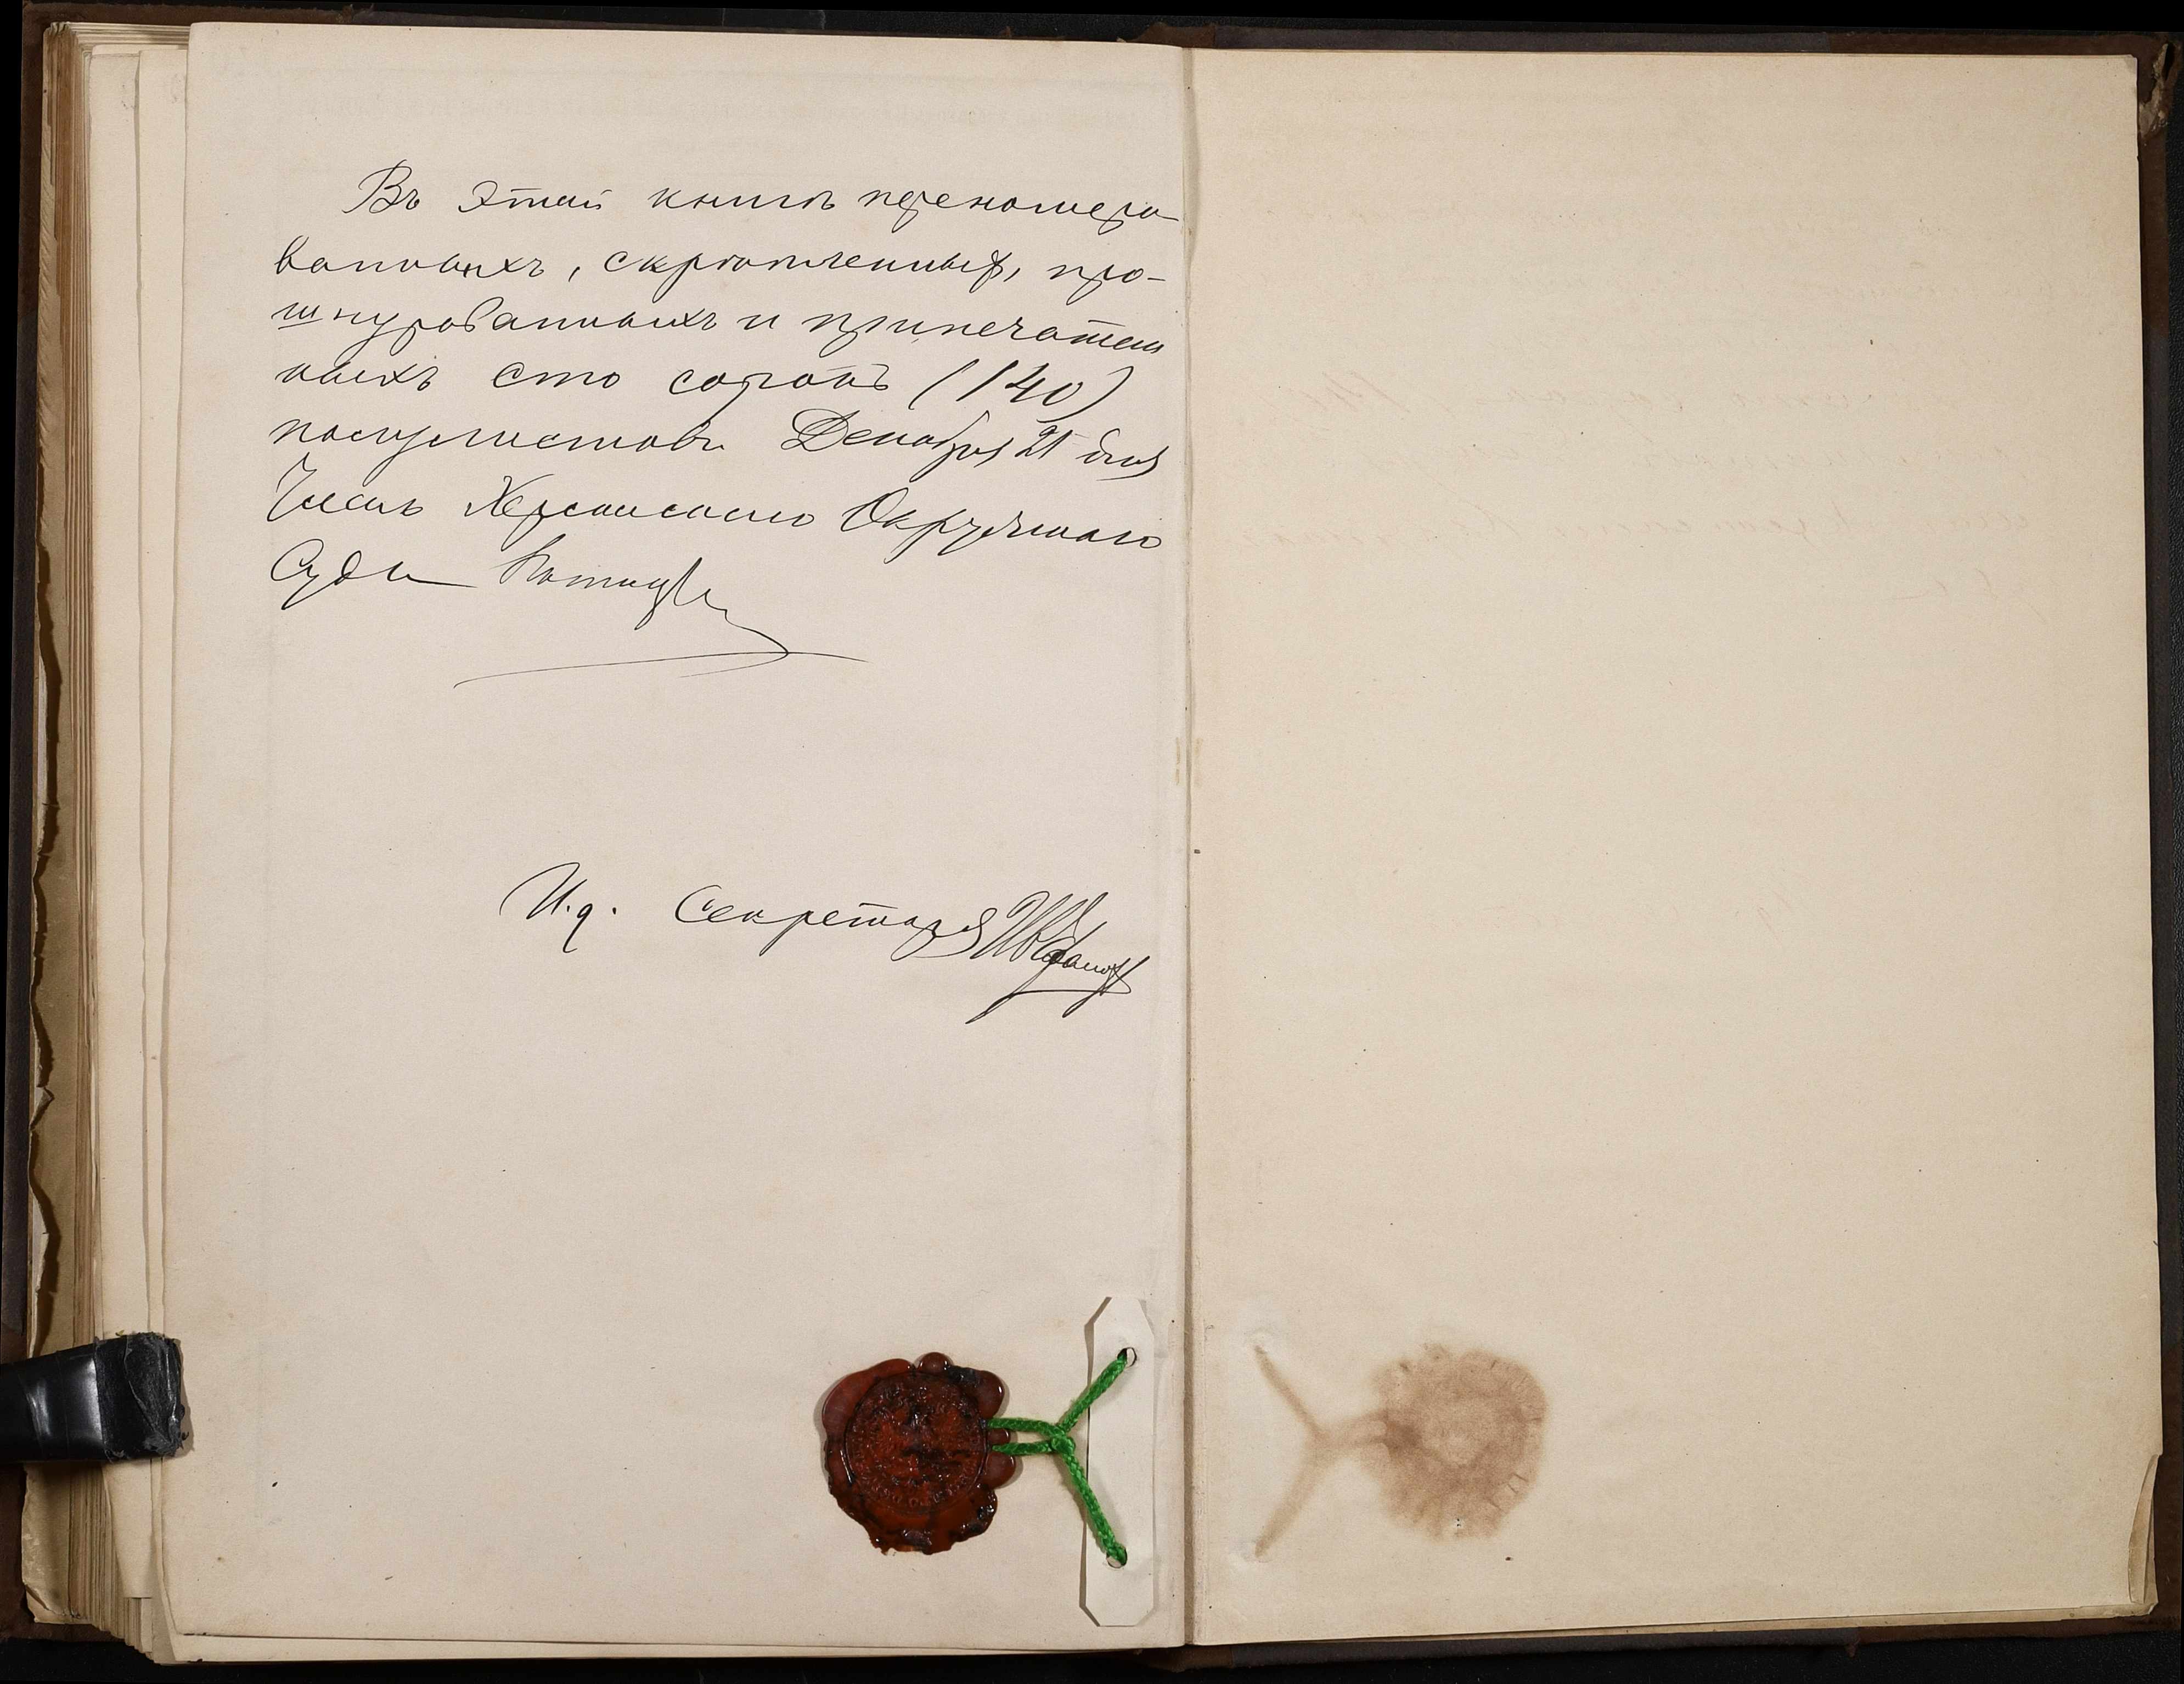 Въ этой книгѣ перенумеро
ванныхъ, скрѣпленныхъ, про-
шнурованныхъ и припечатан
ныхъ сто сорокъ (140)
полулистовъ. Декабря 21 дня
Членъ Херсонскаго Окружнаго
Суда
И. д. Секретаря